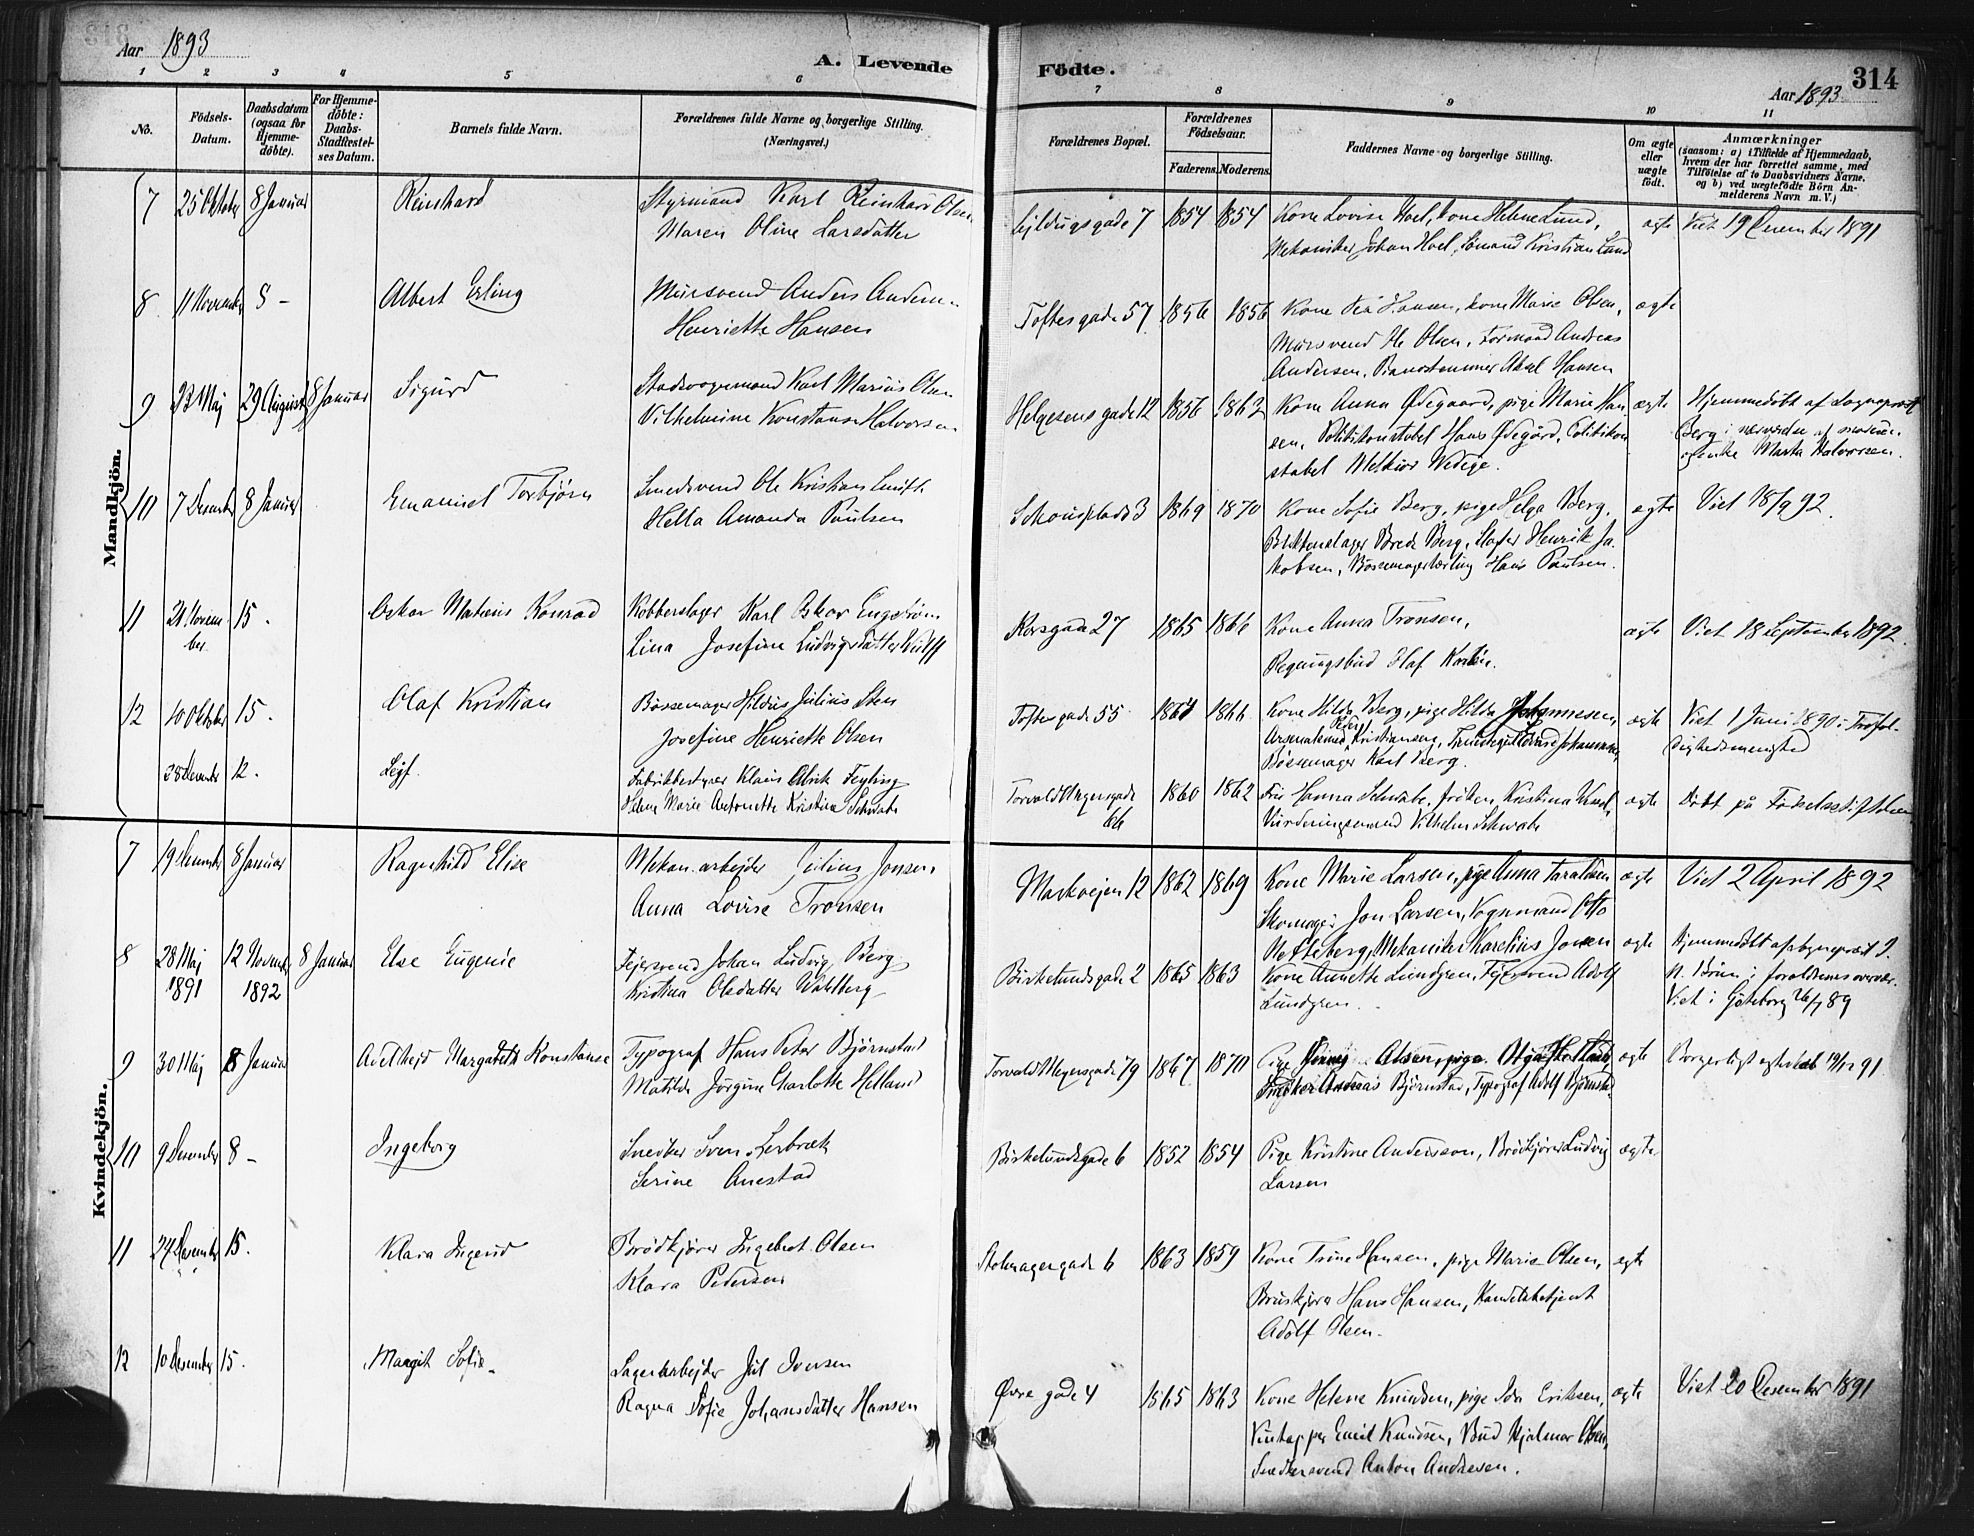 Aar 1893
A. Levende
Födte.
Aar 1893
314
1 2 3 4 5 6 7 8 9 10 11
No.
Födsels-
Datum.
Daabsdatum
(ogsaa for
Hjemme-
döbte).
For Hjemme-
döbte:
Daabs-
Stadfæstel-
ses Datum.
Barnets fulde Navn.
Forældrenes fulde Navne og borgerlige Stilling.
(Næringsvei.)
Forældrenes Bopæl.
Forældrenes
Födselsaar.
Faderens. Moderens.
Faddernes Navne og borgerlige Stilling.
Om ægte
eller
uægte
födt.
Anmærkninger
(saasom: a) i Tilfælde af Hjemmedaab,
hvem der har forrettet samme, med
Tilföielse af to Daabsvidners Navne,
og b) ved uægtefödte Börn An-
melderens Navn m. V.)
Mandkjön.
7 25 Oktober 8 Januar Reinhard Styrmand Karl Reinhard Olsen
Maren Oline Larsdatter
gade 7 1854 1854 Kone Lovise Hoel, kone Helene Lund,
Mekaniker Johan Hoel, Sömand Kristian Lund
ægte Viet 19 December 1891
8 11 November 8 - Albert Erling Mursvend Anders Andersen
Henriette Hansen
Toftesgade 57 1856 1856 Kone Hansen, kone Marie Olsen,
Mursvend Ole Olsen, Formand Andreas
Andersen, Pianostemmer Aksel Hansen
ægte
9 23 Maj 29 August 8 Januar Sigurd Stadsvognmand Karl Marius Olsen
Vilhelmine Konstanse Halvorsen
Helgesensgade 12 1856 1862 Kone Anna Ødegaard, pige Marie Han
sen, Politikonstabel Hans Ødegård, Politikon
stabel Melkior Wedege.
ægte Hjemmedöbt af Sogneprest
Berg i nærværelse af moderen
og enke Marta Halvorsen.
10 7 Desember 8 Januar Emanuel Torbjörn Smedsvend Ole Kristian Smith
Hella Amanda Paulsen
Schousplads 3 1869 1870 Kone Sofie Berg, pige Helga Berg,
Blikkenslager Brede Berg, Henrik Ja
kobsen, Bössemagerlærling Hans Paulsen.
ægte Viet 18/9 92
11 21 Novem-
ber 15. Oskar Matæus Konrad Kobberslager Karl Oskar Engström
Lina Josefine Ludvigsdatter Wulff
Korsgade 27 1865 1866 Kone Anna Tronsen,
Regningsbud Olaf
ægte Viet 18 September 1892.
12 10 Oktober 15. Olaf Kristian Bössemager Hildus Julius Sten
Josefine Henriette Olsen
Toftesgade 55 1864 1866 Kone Hilda Berg, pige Hilda Johannesen,
Bössemager Karl Berg.
ægte Viet 1 Juni 1890 i Trefol-
dighedsmenighed
28 Desember 12. Leif. Fabrikbestyrer Klaus Ulrik Feyling
Helene Marie Antonette Kristina Schwabe
Torvald Meyersgade
66 1860 1862 Fru Hanna Schwabe, fröken Kristina
Vurderingsmand Vilhelm Schwabe
ægte Döbt på Födselsstiftelsen
Kvindekjön.
7 19 Desember 8 Januar Ragnhild Elise Mekan. arbejder Julius Jonsen
Anna Lovise Tronsen
Markvejen 12 1862 1869 Kone Marie Larsen, pige Anna Taraldsen
Skomager Jon Larsen, Vognmand Otto
Netteberg, Mekaniker Karelius Jonsen
ægte Viet 2 April 1892
8 28 Maj
1891 12 Novemb.
1892 8 Januar Else Eugenie Fejersvend Johan Ludvig Berg
Kristina Olsdatter Wahlberg
Birkelundsgade 2 1865 1863 Kone Annette Lundgren, Fejersvend Adolf
Lundgren.
ægte Hjemmedöbt af sogneprest J.
N. Bruun i forældrenes overvær.
Viet i Göteborg 26/7 89
9 30 Maj 8 Januar Adelhejd Margarete Konstanse Typograf Hans Peter Björnstad
Matilde Jörgine Charlotte Helland
Torvald Meyersgade 79 1867 1870 Pige Jenny Olsen, pige Olga
Snedker Andreas Björnstad, Typograf Adolf Björnstad.
ægte Borgerligt ægteskab 19/12 91
10 9 Desember 8 - Ingeborg Snedker Sven Lerbræk
Serine Anestad
Birkelundsgade 6 1852 1854 Pige Kristine Andersson, Brödkjörer Ludvig
Larsen
ægte
11 24 Desember 15. Klara Ingerid Brödkjörer Ingebret Olsen
Klara Pedersen
Stolmagergade 6 1863 1859 Kone Trine Hansen, pige Marie Olsen,
Bruskjörer Hans Hansen, Handelsbetjent
Adolf Olsen.
ægte
12 10 Desember 15. Margit Sofie Lagerarbejder Jul Iversen
Ragna Sofie Johansdatter Hansen
Øvre gade 4 1865 1863 Kone Helene Knudsen, pige Ida Eriksen,
Vintapper Emil Knudsen, Bud Hjalmar Olsen,
Snedkersvend Anton Andresen.
ægte Viet 20 Desember 1891